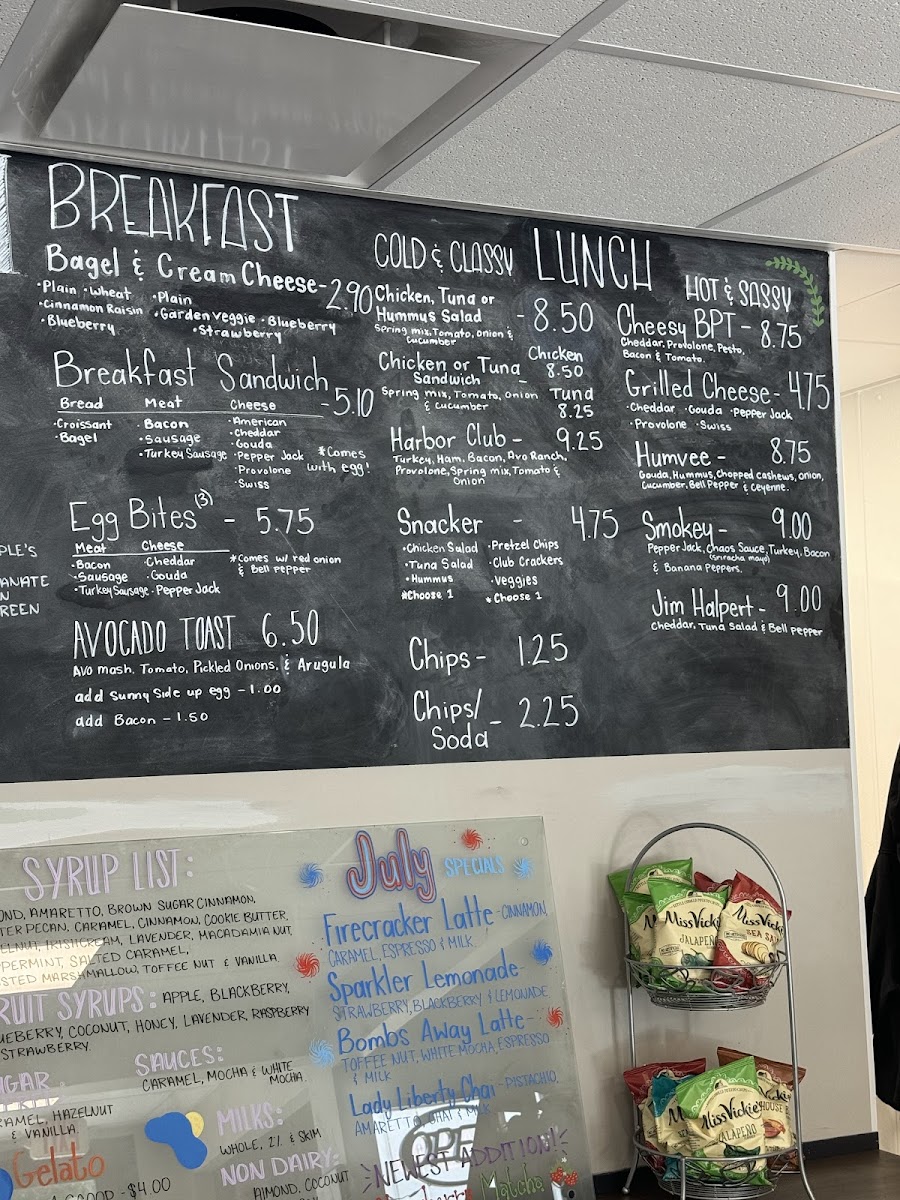 BREAKFAST
Bagel & Cream Cheese - 2.90
·Plain ·Wheat
·Cinnamon Raisin
·Blueberry
·Plain
·Garden veggie ·Blueberry
·Strawberry
Breakfast Sandwich - 5.10
Bread Meat Cheese
·Croissant
·Bagel
·Bacon
·Sausage
·Turkey Sausage
·American
·Cheddar
·Gouda
·Pepper Jack
·Provolone
·Swiss
*Comes
with egg!
Egg Bites (3) - 5.75
Meat Cheese
·Bacon
·Sausage
·Turkey Sausage
·Cheddar
·Gouda
·Pepper Jack
*Comes w/ red onion
& Bell pepper
AVOCADO TOAST 6.50
Avo mash, Tomato, Pickled Onions, & Arugula
add Sunny Side up egg - 1.00
add Bacon - 1.50
PLE'S
ANATE
N
REEN
LUNCH
COLD & CLASSY
Chicken, Tuna or
Hummus Salad - 8.50
Spring mix, Tomato, Onion &
Cucumber
Chicken or Tuna
Sandwich -
Chicken
8.50
Tuna
8.25
Spring mix, Tomato, Onion
& Cucumber
Harbor Club - 9.25
Turkey, Ham, Bacon, Avo Ranch,
Provolone, Spring mix, Tomato &
Onion
Snacker - 4.75
·Chicken Salad
·Tuna Salad
·Hummus
*Choose 1
·Pretzel Chips
·Club Crackers
·Veggies
*Choose 1
Chips - 1.25
Chips/
Soda - 2.25
HOT & SASSY
Cheesy BPT - 8.75
Cheddar, Provolone, Pesto,
Bacon & Tomato.
Grilled Cheese - 4.75
·Cheddar ·Gouda ·Pepper Jack
·Provolone ·Swiss
Humvee - 8.75
Gouda, Hummus, Chopped cashews, onion,
Cucumber, Bell Pepper & Ceyenne.
Smokey - 9.00
Pepper Jack, Chaos Sauce, Turkey, Bacon
(sriracha mayo)
& Banana Peppers.
Jim Halpert - 9.00
Cheddar, Tuna Salad & Bell pepper
SYRUP LIST:
OND, AMARETTO, BROWN SUGAR CINNAMON,
TER PECAN, CARAMEL, CINNAMON, COOKIE BUTTER,
ELNUT, IRISH CREAM, LAVENDER, MACADAMIA NUT,
PPERMINT, SALTED CARAMEL,
STED MARSHMALLOW, TOFFEE NUT & VANILLA.
RUIT SYRUPS: APPLE, BLACKBERRY,
UEBERRY, COCONUT, HONEY, LAVENDER, RASPBERRY
STRAWBERRY.
SAUCES:
CARAMEL, MOCHA & WHITE
MOCHA.
UGAR
RAMEL, HAZELNUT
& VANILLA.
Gelato
SCOOP - $4.00
MILKS:
WHOLE, 2% & SKIM
NON DAIRY:
ALMOND, COCONUT
July SPECIALS
Firecracker Latte - CINNAMON,
CARAMEL, ESPRESSO & MILK
Sparkler Lemonade -
STRAWBERRY, BLACKBERRY & LEMONADE
Bombs Away Latte -
TOFFEE NUT, WHITE MOCHA, ESPRESSO
& MILK
Lady Liberty Chai - PISTACHIO,
AMARETTO, CHAI & MILK
OPE
NEWEST ADDITION!
Matcha
Miss Vickie's
JALAPEÑO
Miss Vickie's
SEA SA
Miss Vickie's
JALAPEÑO